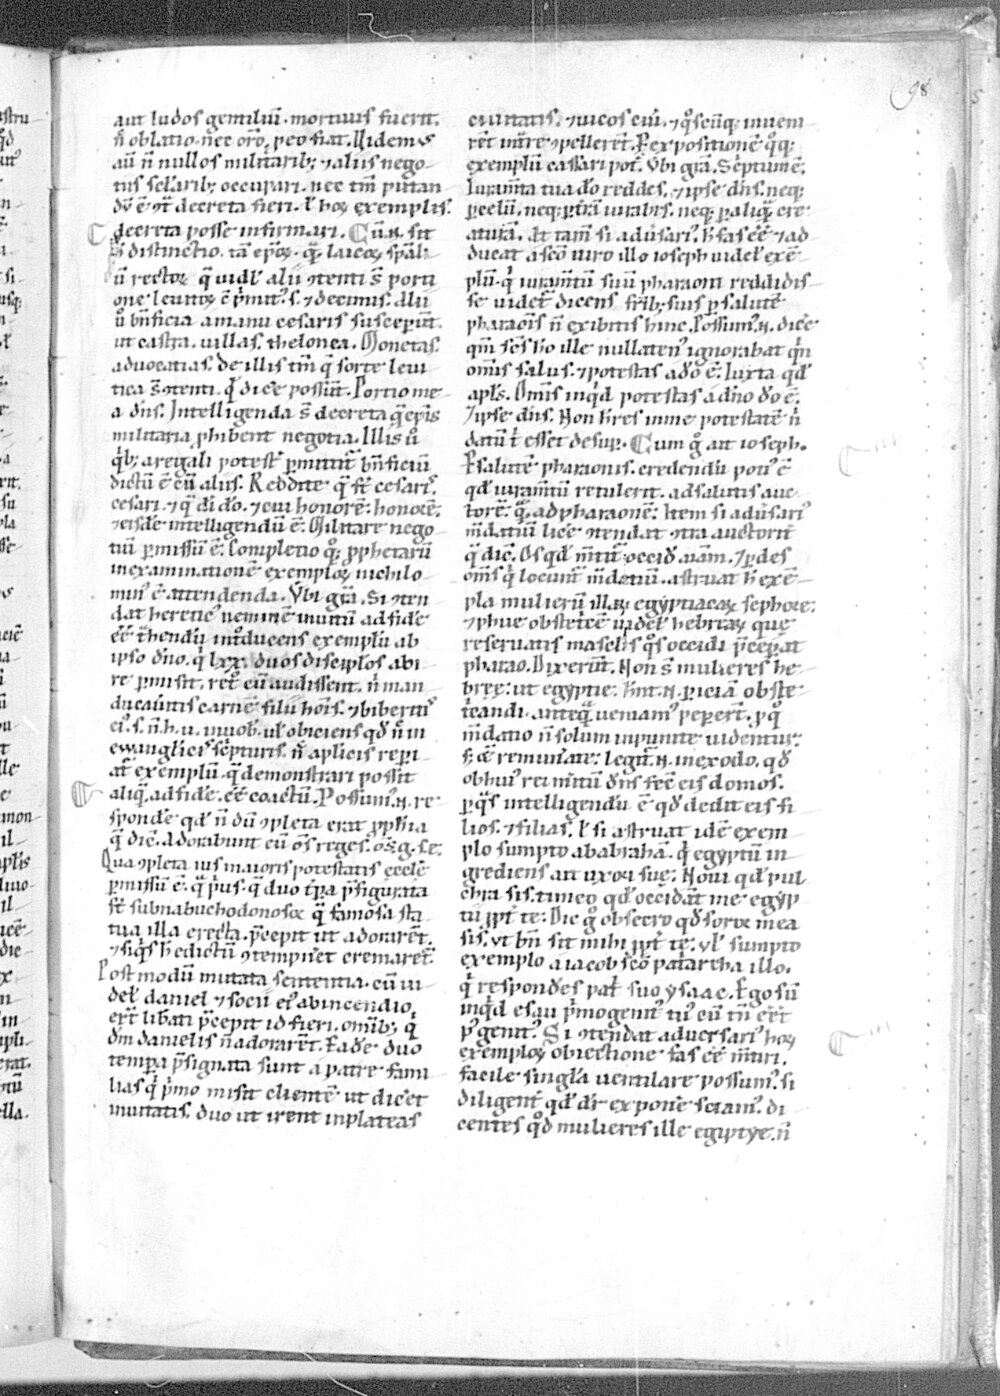 98
aut ludos gentiliū. mortuus fuerit.
n̄ oblatio. nec orō. p eo fiat. Uidem᷒
aū n̄ nullos militarib; & aliis nego
tiis sclarib; occupari. nec tm̄ putan
decreta fieri. ł hoꝝ exemplis
decreta posse infirmari. Cū. n. sit
distinctio. tā epōꝝ. quā laicoꝝ
one leuitoꝝ ē p̄mitiis. & decimis. Alii
ū bn̄ficia a manu cesaris susceperūt.
ut castra. uillas. thelonea. Monetas.
aduocatias. de illis tm̄ q̄ sorte leui
tica s̄ ꝯtenti. q̄ dicere possunt. Portio me
a dn̄s. Intelligenda s̄ decreta q̄ ep̄is
militaria phibent negotia. Illis ū
q̇b; a regali potestate ꝑmittit̄ bn̄ficiū
dictū ē cū aliis. Reddite q̄ st̄ cesaris
cesari. & q̄ di dō. & cui honorē: honorē:
& eisdē intelligendū ē. Militare nego
tiū ꝑmissū ē. Completio q̊q; ꝓphetarū
in examinatione exemploꝝ nichilo
min᷒ ē attendenda. Vbi grā. Si ꝯten
dat heretic᷒ neminē inuitū ad fidē
eē t̄hendū int̊ducens exemplū ab
ipso dn̄o. q̇ lxx. duos disciplos abi
re ꝑmisit. ret̊. cū audissent. n̄ man
ducaūitis carnē filii hōīs. & biberitis
ei᷒. s. n̄. h. u. in uob. uł obiciens qđ n̄ in
ewangłicis scpturis. n̄ apłicis repi
at̄ exemplū. q̇ demonstrari possit
aliq̄. ad fidē. cē coactū. Possum᷒. n. re
spondē qđ n̄ dū ꝯpleta erat ꝓphīa
q̄ dic̄. Adorabunt eū ōs reges. o. g. s. e:
Qua ꝯpleta ius maioris potestatis ecclē
ꝑmissū ē. q̄ p̄us. q̄ duo tp̄a p̄figurata
st̄ sub nabuchodonosor q̄ famosa sta
tua illa erecta. p̄cepit ut adorarēt.
& siq̇s h̄ edictū ꝯtempn̄et cremaret̄.
Post modū mutata sententia. cū ui
det̄ daniel & socii ei᷒ ab incendio
eēt libati p̄cepit id fieri. omīb; q̇
dm̄ danielis n̄ adorarēt. Eadē duo
tempa p̄signata sunt a patre fami
lias q̇ p̄mo misit clientē ut dicet
inuitatis. duo ut irent in plateas
ciuitatis. & uicos eiū. & q̊scūq; inuem
rēt int̄re ꝯpellerēt. Per expositionē q̊q;
exemplū cassari pot̄. Vbi grā. Septum ē.
Iuramta tua dō reddes. & ipse dn̄s. neq;
ꝑ celū. neq; ꝑ t̄rā iurabis. neq; ꝑ aliquā cre
aturā. At tam̄ si adūsari᷒. h̄ fas cē & ad
ducat a scō uiro illo ioseph uideł exē
plū. q̇ iuramtū suū pharaoni reddidis
se uidet̄ dicens frīb; suis ꝑ salutē
pharaōis n̄ exibitis hinc. Possum᷒. n. dicē
qm̄ scs hō ille nullaten᷒ ignorabat qm̄
omis salus. & potestas a dō ē. Iuxta qđ
apłs. Omīs inqđ potestas a dn̄o dō ē.
& ipse dn̄s. Non hr̄es in me potestatē n̄
datū t̄ esset desup. Cum g̊ ait ioseph.
Per salutē pharaonis. credendū poti᷒ ē
qđ iuramtū retulerit. ad salutis auc
torē. quā ad pharaonē: Item si adūsari᷒
m̄datiū licē ꝯtendat ꝯtra auctoritē
q̄ dic̄. Os qđ m̄tit̄. occidit aīam. & ꝑdes
om̄s q̇ locunt̄ m̄datiū. astruat h̄ exē
pla mulierū illaꝝ egyptiacaꝝ sephore:
& phue obstetcē uideł hebreaꝝ que
reseruatis masclis q̊s occidi p̄cepat
pharao. Dixerūt. Non s̄ mulieres he
bree: ut egyptie: hn̄t. n. ꝑiciā obste
t̄candi. anteq̄ ueniam᷒ peperer̄t. ꝓ q̊
m̄datio n̄ solum inpunite uidentur:
s; cē remun̄ate: legit̄. n. in exodo. qđ
ob hui᷒ rei mitū dn̄s fec̄ eis domos.
ꝑ q̄s intelligendū ē qđ dedit eis fi
lios. & filias. ł si astruat idē exem
plo sumpto ab abrahā. q̇ egyptū in
grediens ait uxori sue: Noui qđ pul
chra sis. timeo qđ occidāt me egyp
tii ꝓpt̄ te: Dic g̊ obsecro qđ soror mea
sis. ut bn̄ sit mihi ꝓpt̄ te. uł sumpto
exemplo a iacob scō patarcha illo.
q̇ respondēs pat̄ suo ysaac. Ego sū
inqđ esau p̄mogenit᷒ tu᷒ cū tn̄ eēt
p᷒ genit᷒. Si ꝯtendat aduersari᷒ hoꝝ
exemploꝝ obiectione fas cē m̄tiri.
facile singla uentilare possum᷒. si
diligent̄ qđ dr̄ exponē sciam᷒. di
centes q̊d mulieres ille egiptye. n̄